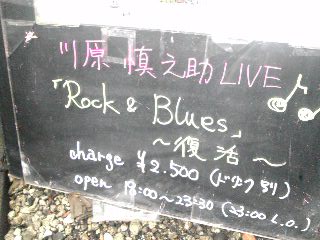 川原 慎之助 LIVE
「Rock & Blues」
～復活～
charge ¥2.500 (ドリンク別)
open 18:00～23:30 (23:00 L.O.)